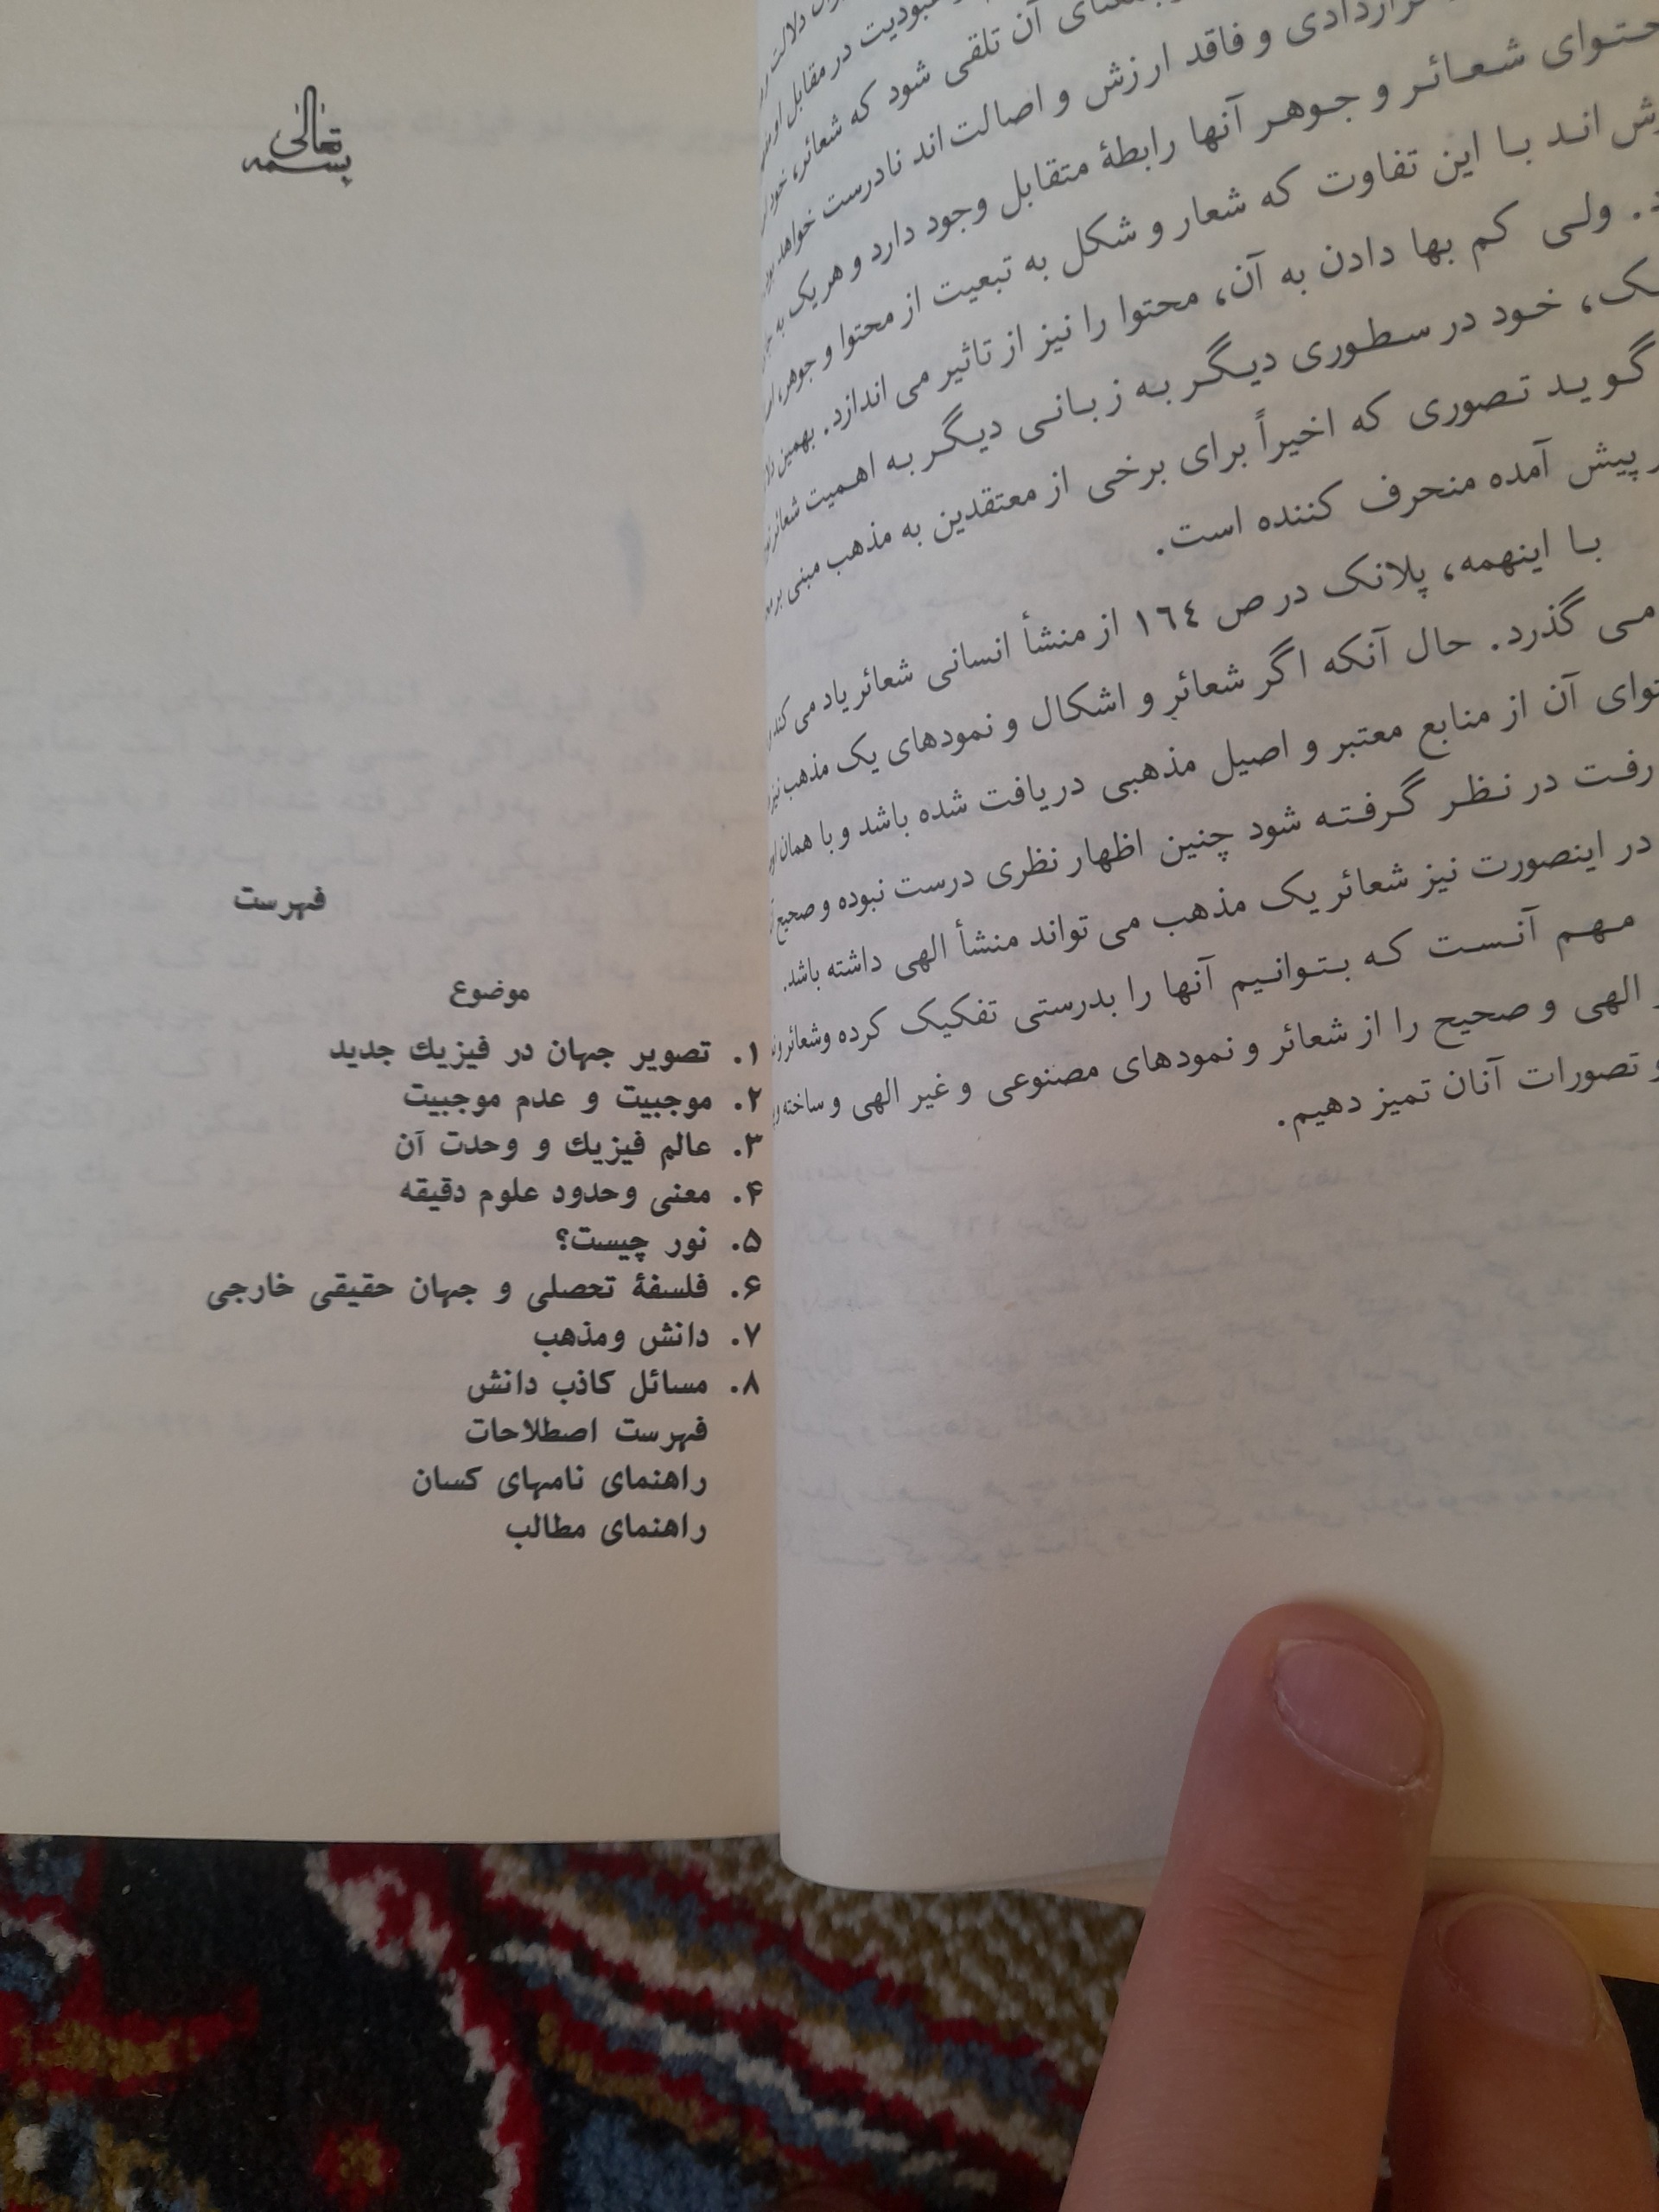 عبودیت در مقابل او
آن تلقی شود که شعائر، خود
قراردادی و فاقد ارزش و اصالت اند نادرست خواهد
شعائر و جوهر آنها رابطهٔ متقابل وجود دارد و هریک به
اند با این تفاوت که شعار و شکل به تبعیت از محتوا و جوهر
ولی کم بها دادن به آن، محتوا را نیز از تاثیر می اندازد. بهمین
خود در سطوری دیگر به زبانی دیگر به اهمیت شعائر
گوید تصوری که اخیراً برای برخی از معتقدین به مذهب مبنی بر
پیش آمده منحرف کننده است.
با اینهمه، پلانک در ص ١٦٤ از منشأ انسانی شعائر یاد می کند
می گذرد. حال آنکه اگر شعائر و اشکال و نمودهای یک مذهب نیز
آن از منابع معتبر و اصیل مذهبی دریافت شده باشد و با همان
رفت در نظر گرفته شود چنین اظهار نظری درست نبوده و صحیح
در اینصورت نیز شعائر یک مذهب می تواند منشأ الهی داشته باشد.
مهم آنست که بتوانیم آنها را بدرستی تفکیک کرده و شعائر و
الهی و صحیح را از شعائر و نمودهای مصنوعی و غیر الهی و ساخته
و تصورات آنان تمیز دهیم.
بسمه تعالی
فهرست
موضوع
۱. تصویر جهان در فیزیك جدید
۲. موجبیت و عدم موجبیت
۳. عالم فیزیك و وحدت آن
۴. معنی وحدود علوم دقیقه
۵. نور چیست؟
۶. فلسفهٔ تحصلی و جهان حقیقی خارجی
۷. دانش ومذهب
۸. مسائل کاذب دانش
فهرست اصطلاحات
راهنمای نامهای کسان
راهنمای مطالب